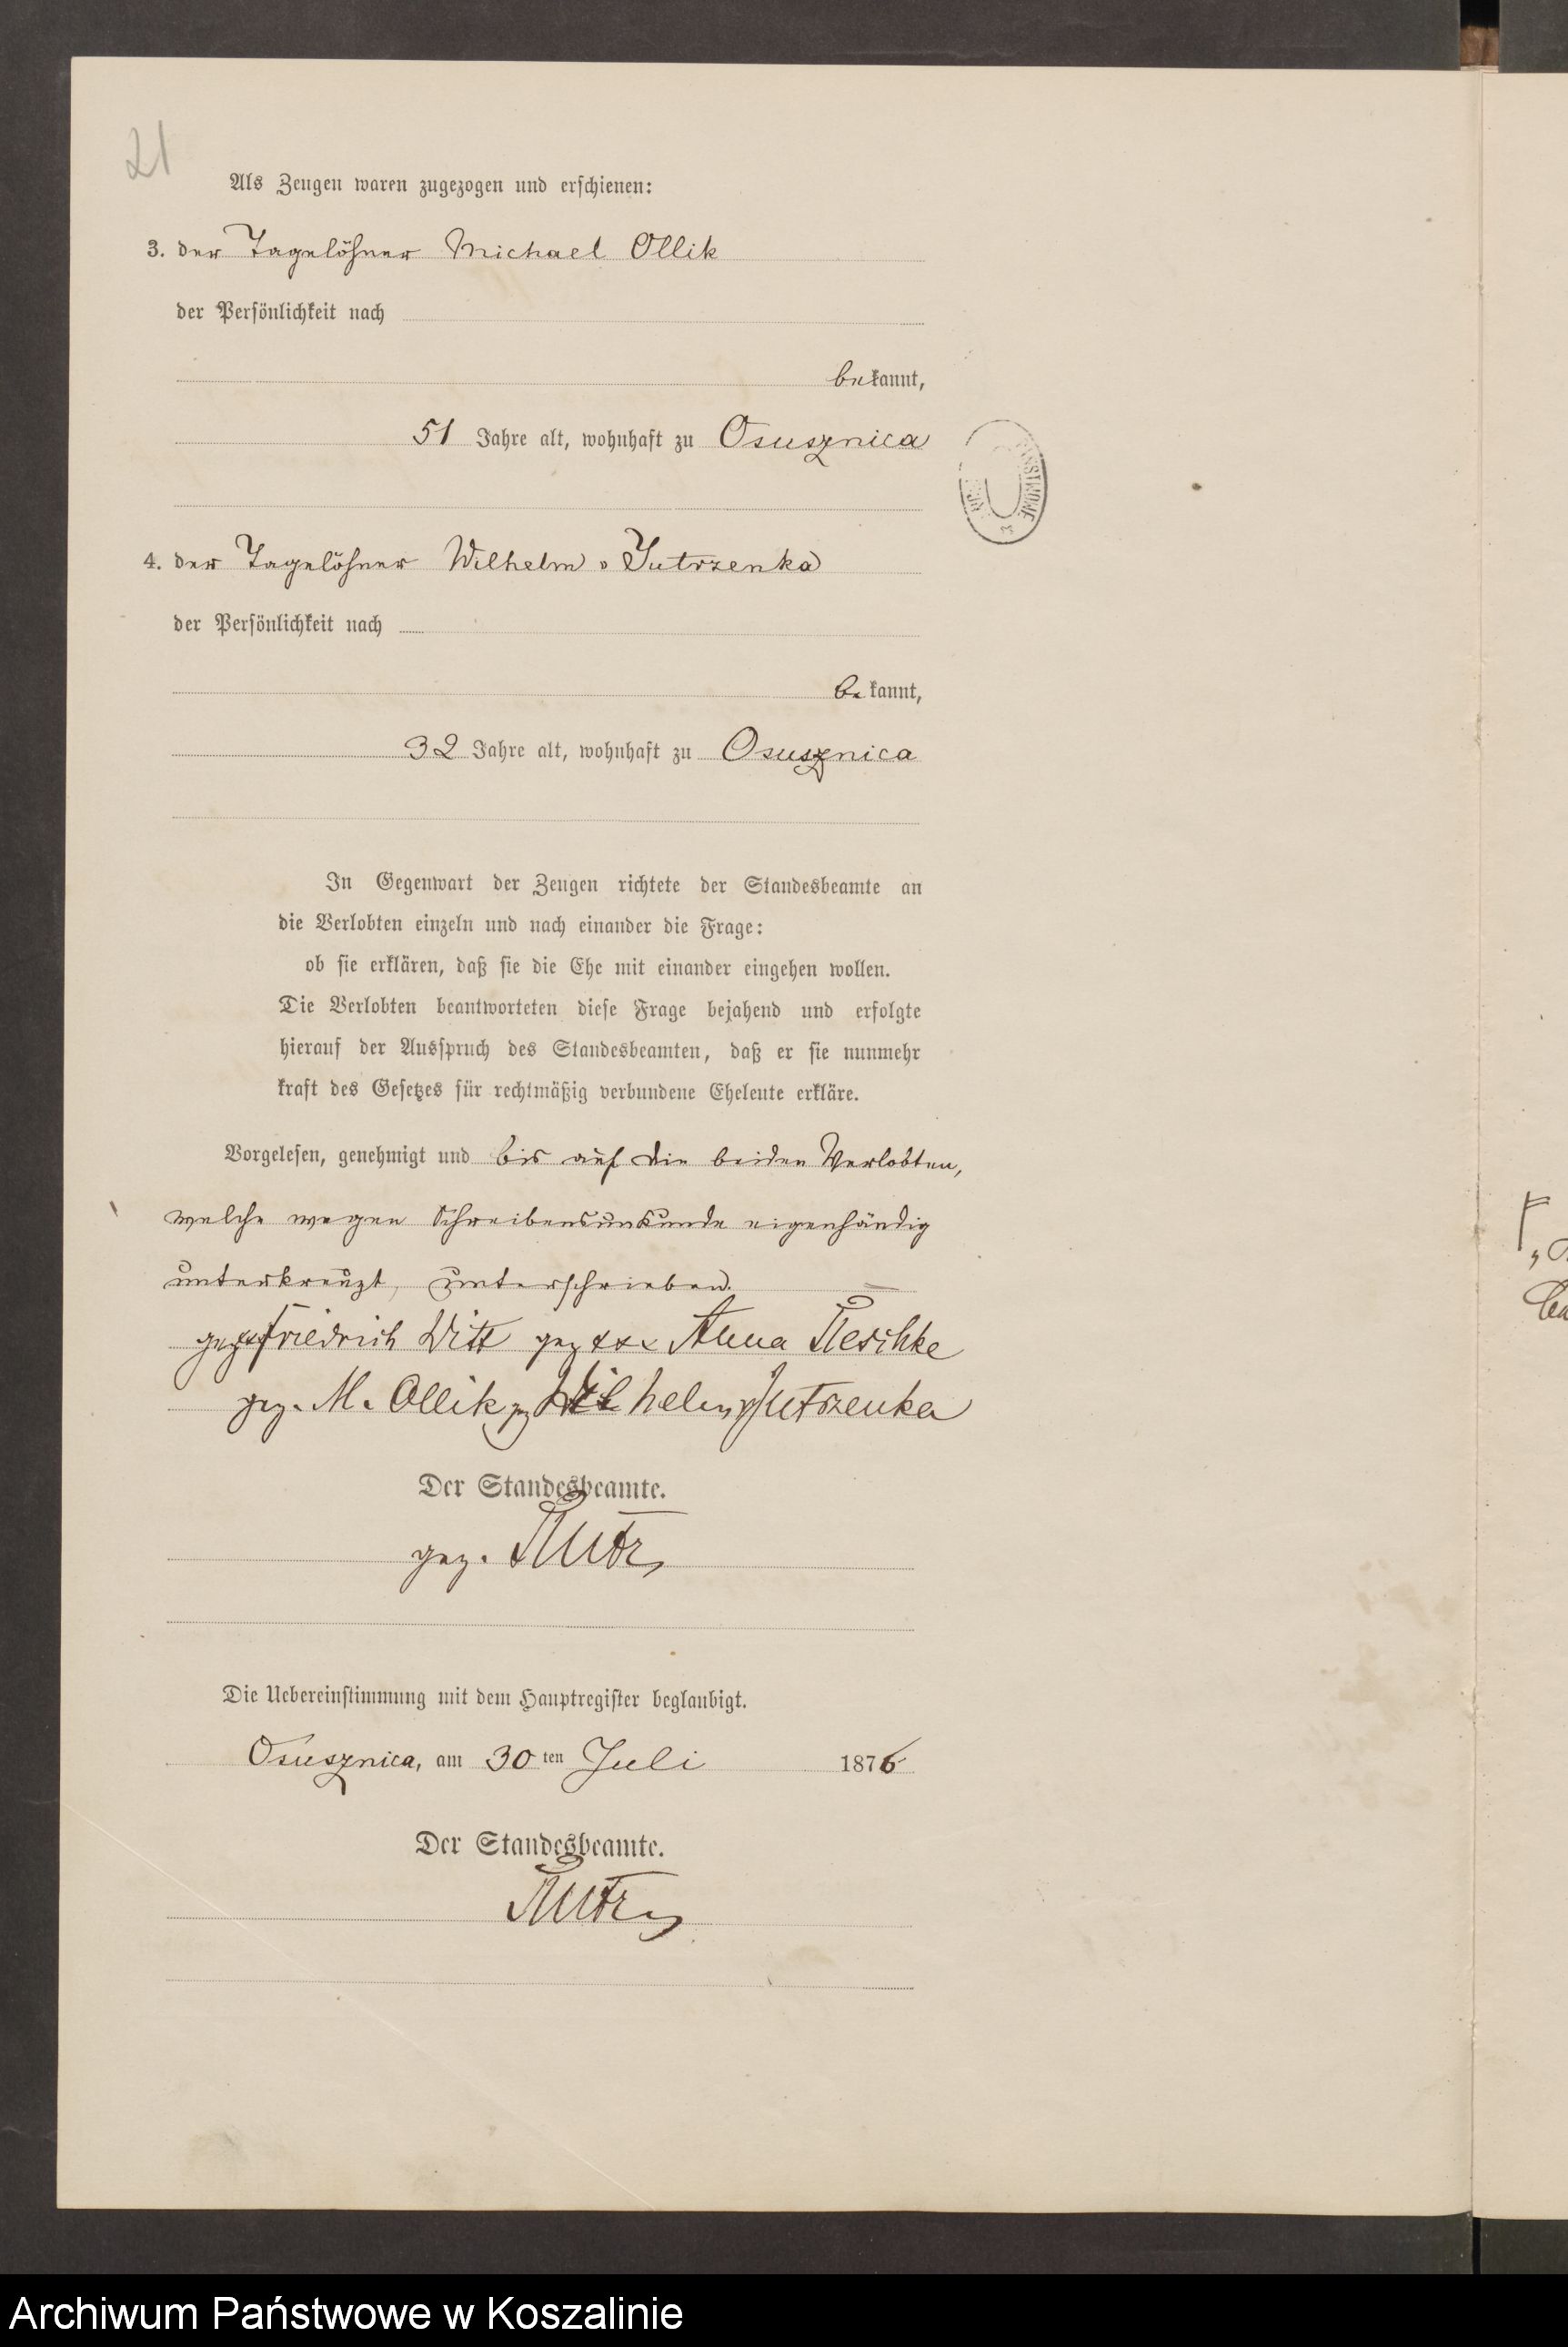 21
Als Zeugen waren zugezogen und erschienen:
3. der Tagelöhner Michael Ollik
der Persönlichkeit nach
bekannt,
51 Jahre alt, wohnhaft zu Osusznica
4. der Tagelöhner Wilhelm v Jutrzenka
der Persönlichkeit nach
bekannt,
32 Jahre alt, wohnhaft zu Osusznica
In Gegenwart der Zeugen richtete der Standesbeamte an
die Verlobten einzeln und nach einander die Frage:
ob sie erklären, daß sie die Ehe mit einander eingehen wollen.
Die Verlobten beantworteten diese Frage bejahend und erfolgte
hierauf der Ausspruch des Standesbeamten, daß er sie nunmehr
kraft des Gesetzes für rechtmäßig verbundene Eheleute erkläre.
Vorgelesen, genehmigt und bis auf die beiden Verlobten,
welche wegen Schreibensunkunde eigenhändig
unterkreuzt, unterschrieben.
gez xxx Friedrich Witt gez xxx Anna Peschke
gez. M. Ollik gez Wilhelm v Jutrzenka
Der Standesbeamte.
gez.
Die Uebereinstimmung mit dem Hauptregister beglaubigt.
Osusznica, am 30ten Juli 1876
Der Standesbeamte.
Archiwum Państwowe w Koszalinie